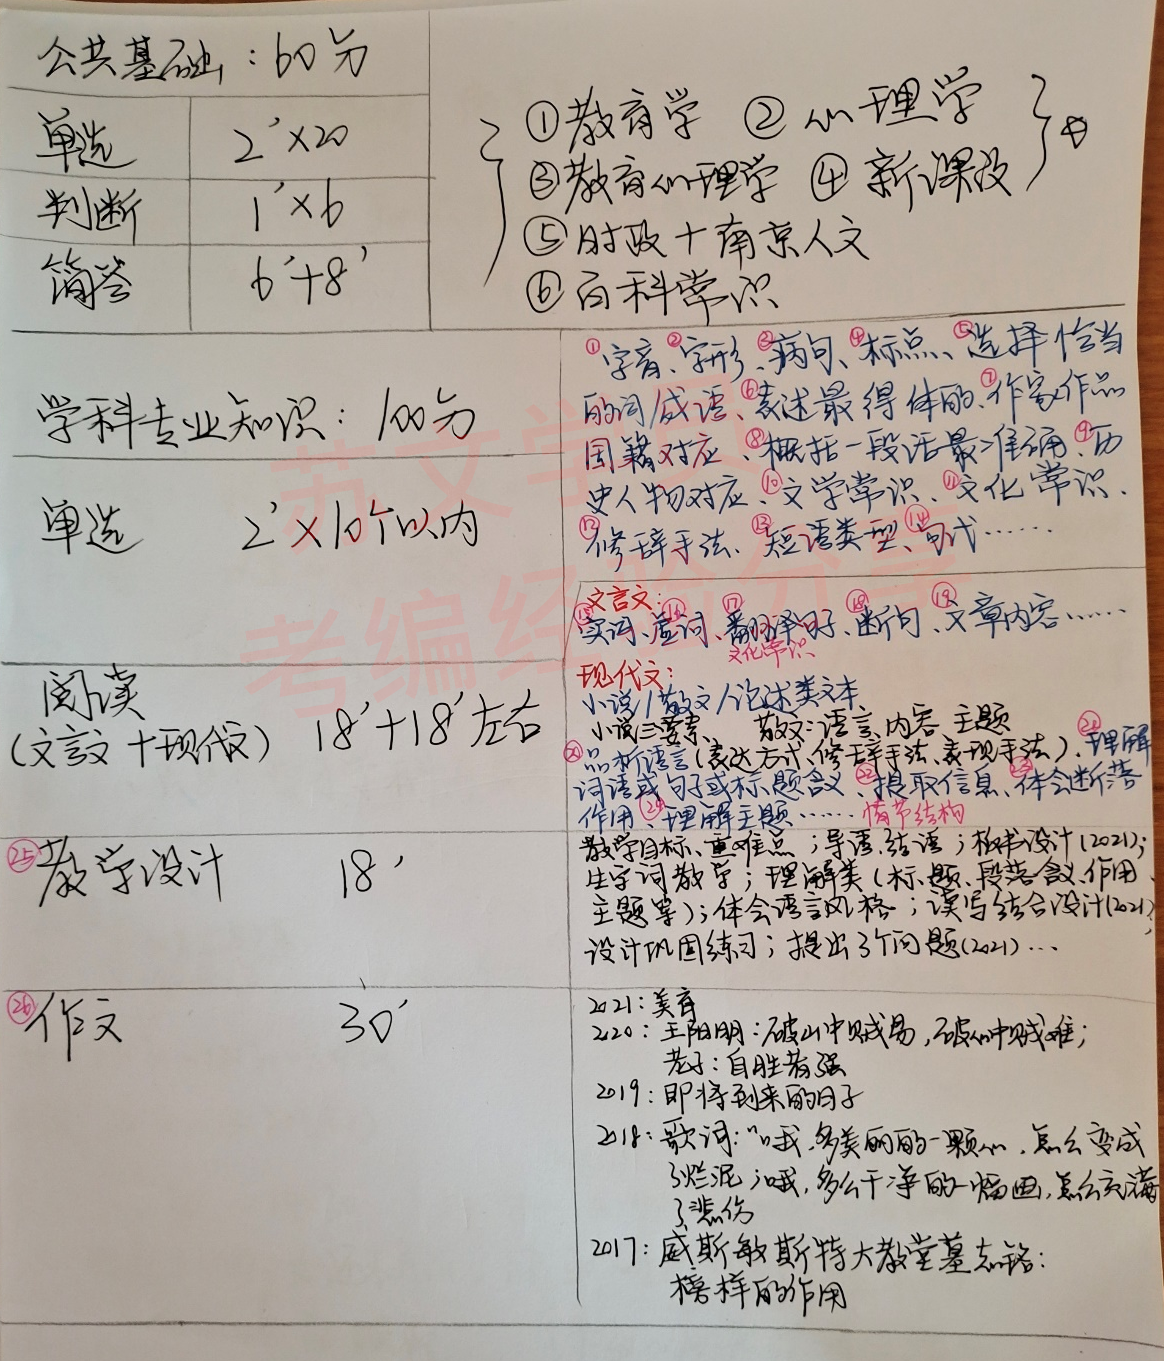 公共基础：60分
单选 2'×20
判断 1'×6
简答 6'+8'
①教育学 ②心理学
③教育心理学 ④新课改
⑤时政+南京人文
⑥百科常识
学科专业知识：100分
单选 2'×10个以内
①字音、②字形、③病句、④标点、⑤选择恰当
的词/成语、⑥表述最得体的、⑦作家作品
国籍对应、⑧概括一段话最准确、⑨历
史人物对应、⑩文学常识、⑪文化常识、
⑫修辞手法、⑬短语类型、⑭句式……
阅读
(文言文+现代文) 18'+18'左右
文言文：
⑮实词、⑯虚词、⑰翻译句子、⑱断句、⑲文章内容……
文化常识
现代文：
小说/散文/论述类文本
小说三要素、 散文：语言 内容 主题
⑳品析语言(表达方式、修辞手法、表现手法)、㉑理解
词语或句子或标题含义、㉒提取信息、㉓体会断落
作用、㉔理解主题…… 情节结构
㉕教学设计 18'
教学目标、重难点；导语、结语；板书设计(2021)；
生字词教学；理解类(标题、段落含义、作用、
主题等)；体会语言风格；读写结合设计(2021)；
设计巩固练习；提出3个问题(2021)…
㉖作文 30'
2021：美育
2020：王阳明：破山中贼易，破心中贼难；
老子：自胜者强
2019：即将到来的日子
2018：歌词：“哦，多美丽的一颗心，怎么变成
了烂泥；哦，多么干净的一幅画，怎么充满
了悲伤
2017：威斯敏斯特大教堂墓志铭：
榜样的作用
苏文学
考编经验分享